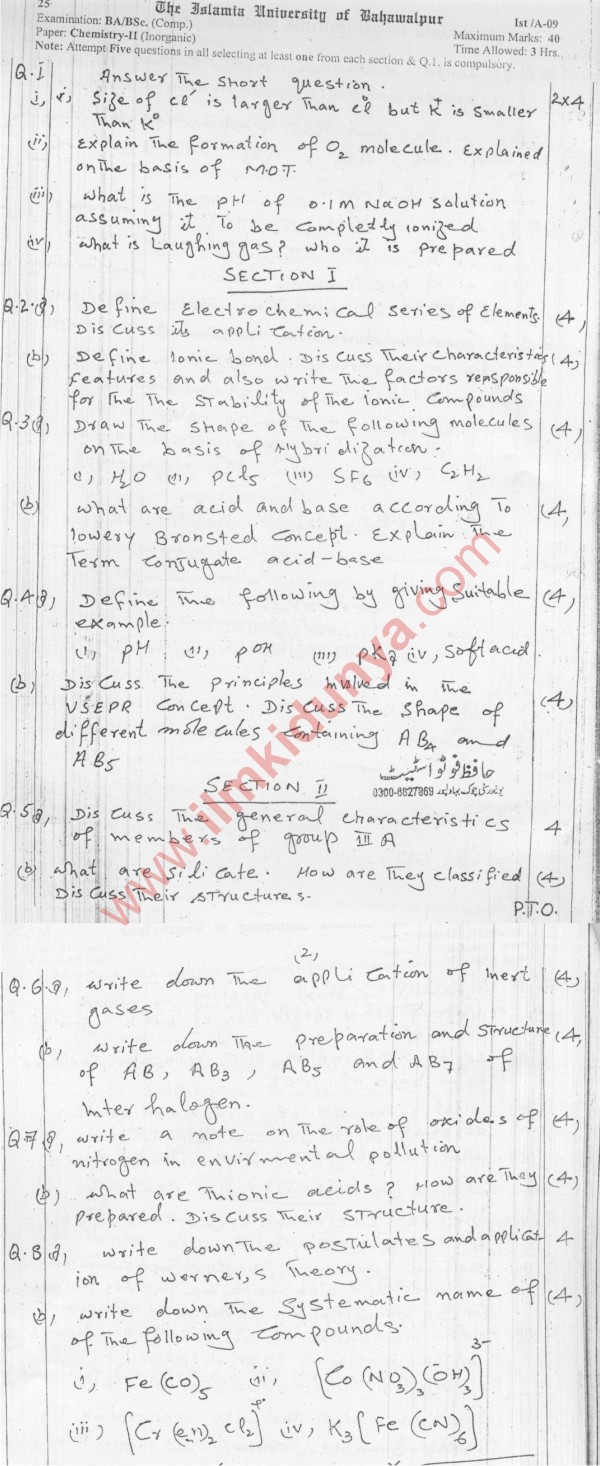 25
The Islamia University of Bahawalpur
Examination: BA/BSc. (Comp.) Ist /A-09
Paper: Chemistry-II (Inorganic) Maximum Marks: 40
Time Allowed: 3 Hrs.
Note: Attempt Five questions in all selecting at least one from each section & Q.1. is compulsory.
Q.I Answer The short question. 2x4
i, Size of cl⁻ is larger Than cl° but K⁺ is smaller
Than K°
(ii) explain The formation of O₂ molecule. Explained
on the basis of M.O.T.
(iii) what is The pH of 0.1M NaOH solution
assuming it To be completly ionized
iv, what is Laughing gas? who it is prepared
SECTION I
Q.2.a, Define Electro chemical series of Elements. (4,
Discuss its appli cation.
(b) Define Ionic bond. Discuss Their characteristics (4,
features and also write The factors remsponsible
for The The Stability of The ionic Compounds
Q.3a, Draw The shape of The following molecules (4,
on The basis of Hybri dization.
i, H₂O ii, PCl₅ (iii) SF₆ iv, C₂H₂
(b) what are acid and base according To (4,
lowery Bronsted Concept. Explain The
Term conjugate acid-base
Q.4a, Define The following by giving Suitable (4,
example.
i, pH ii, pOH (iii) pKa iv, Soft acid.
(b) Discuss The principles involved in The (4)
VSEPR Concept. Discuss The shape of
different mole cules containing AB₄ and
AB₅
حافظ فوٹو اسٹیٹ
0300-6827869
SECTION II
Q.5a, Discuss The general characteristics 4
of members of group III A
(b) what are silicate. How are They classified (4,
Discuss Their structures.
P.T.O.
(2,
Q.6.a, write down The appli cation of Inert (4,
gases
(b, write down The preparation and structure (4,
of AB, AB₃, AB₅ and AB₇ of
Inter halogen.
Q.7.a, write a note on The role of oxides of (4,
nitrogen in envirmental pollution
(b) what are Thionic acids? How are They (4,
prepared. Discuss Their structure.
Q.8.a, write down The postulates and applicat- 4
ion of werner,s Theory.
(b, write down The Systematic name of (4,
of The following compounds.
i, Fe(CO)₅ ii, [Co(NO₃)₃(OH)₃]³⁻
iii) [Cr(en)₂Cl₂]⁺ iv, K₃[Fe(CN)₆]
www.ilmkidunya.com